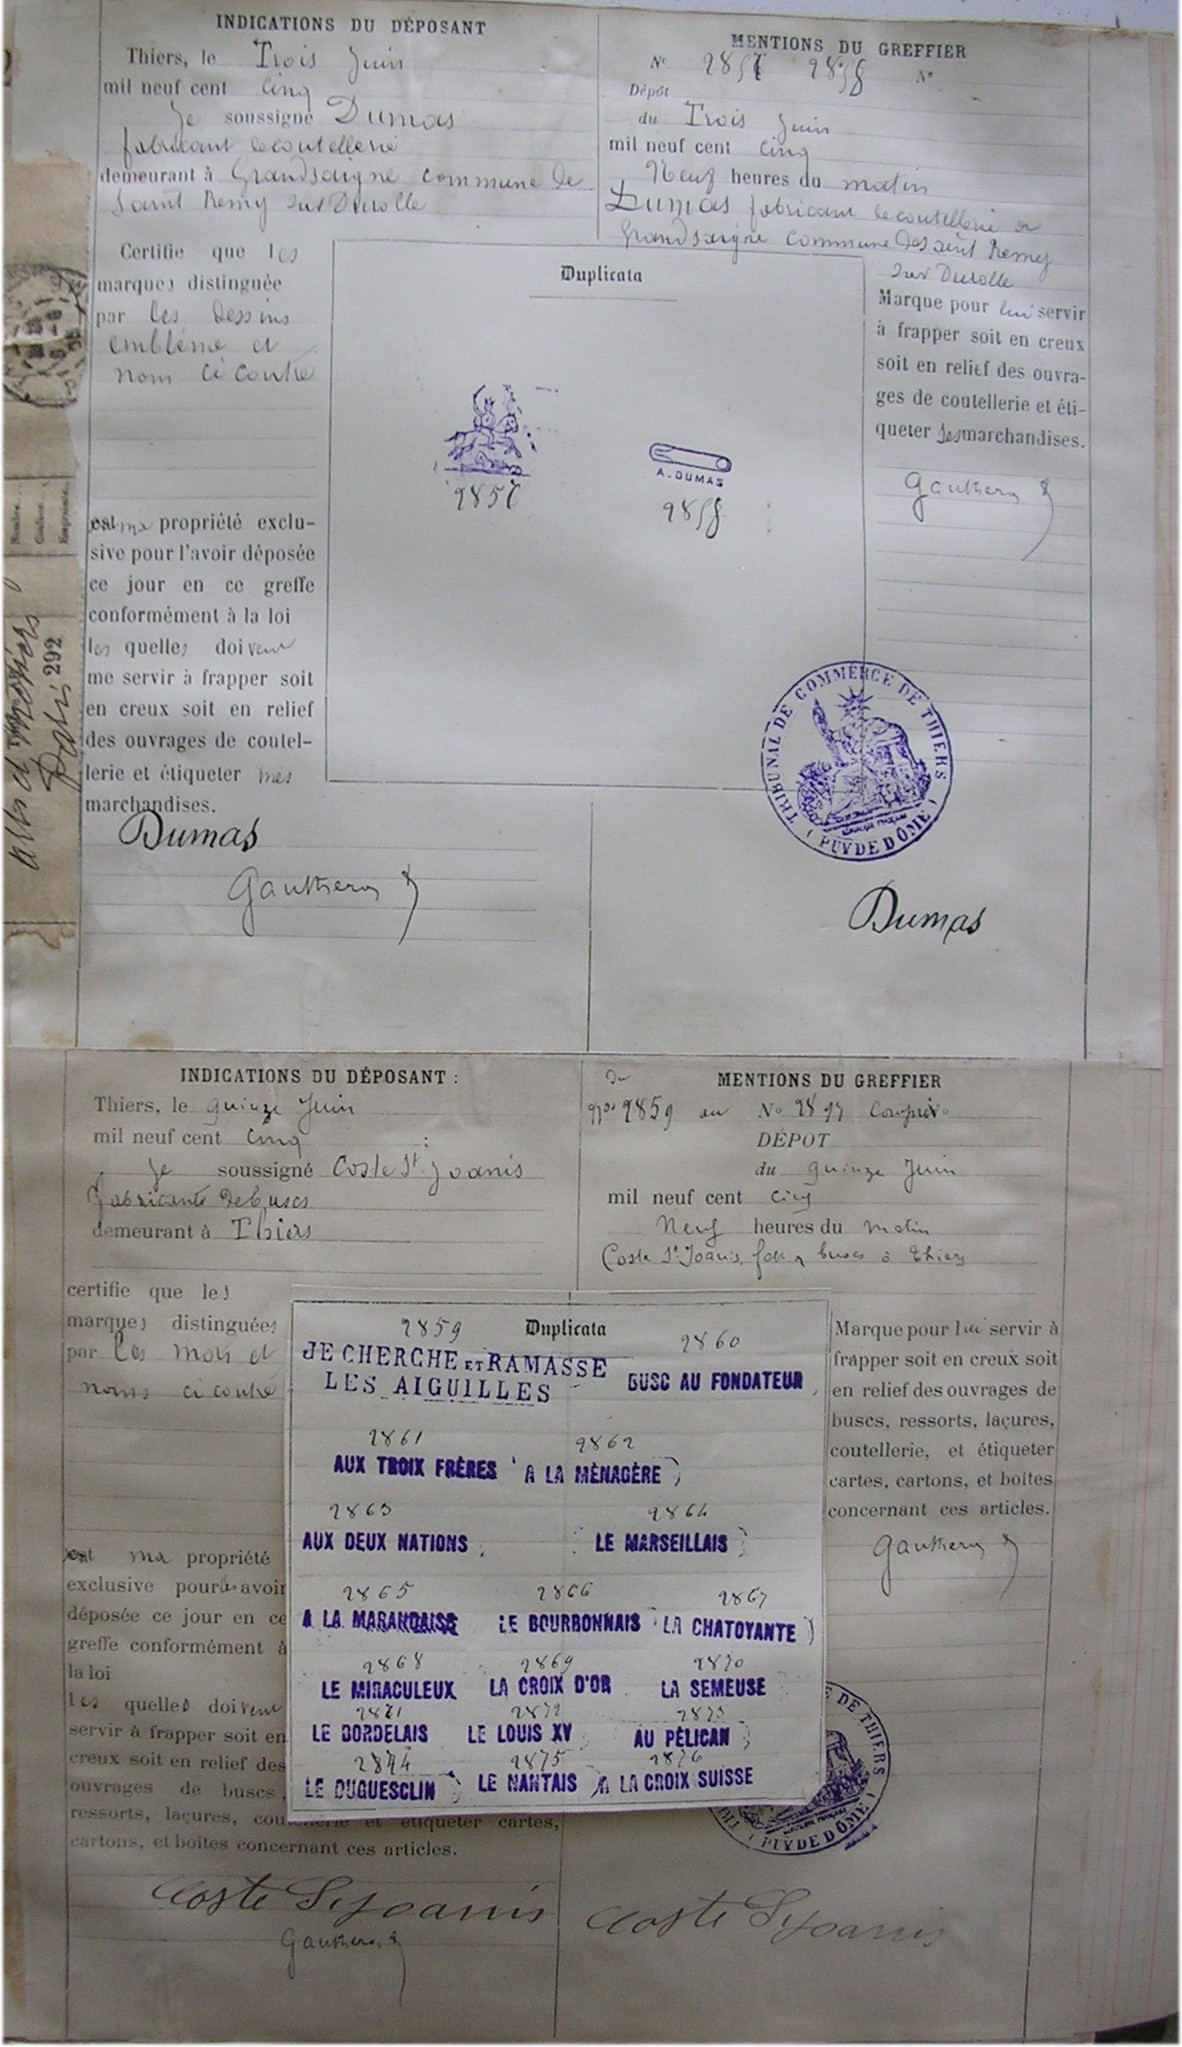 INDICATIONS DU DÉPOSANT
Thiers, le Trois Juin
mil neuf cent cinq
Je soussigné Dumas
fabricant de coutellerie
demeurant à Grandsaigne commune de
Saint Remy sur Durolle
Certifie que les
marques distinguée
par les dessins
emblême et
nom ci contre
est ma propriété exclu-
sive pour l'avoir déposée
ce jour en ce greffe
conformément à la loi
les quelles doivent
me servir à frapper soit
en creux soit en relief
des ouvrages de coutel-
lerie et étiqueter mes
marchandises.
Dumas
Gautheron
MENTIONS DU GREFFIER
No 2857 2858 No
Dépôt
du Trois Juin
mil neuf cent cinq
Neuf heures du matin
Dumas fabricant de coutellerie à
Grandsaigne commune de Saint Remy
sur Durolle
Marque pour lui servir
à frapper soit en creux
soit en relief des ouvra-
ges de coutellerie et éti-
queter ses marchandises.
Gautheron
Duplicata
2857
A. DUMAS
2858
TRIBUNAL DE COMMERCE DE THIERS
( PUY DE DÔME )
Dumas
292
INDICATIONS DU DÉPOSANT :
Thiers, le quinze Juin
mil neuf cent cinq
Je soussigné Coste St Joanis
fabricants de buscs
demeurant à Thiers
certifie que les
marques distinguées
par les mots et
noms ci contre
est ma propriété
exclusive pour les avoir
déposée ce jour en ce
greffe conformément à
la loi
les quelles doivent
servir à frapper soit en
creux soit en relief des
ouvrages de buscs,
ressorts, laçures, cou et étiqueter cartes,
cartons, et boîtes concernant ces articles.
Coste St Joanis
Gautheron
MENTIONS DU GREFFIER
du
Nos 2859 au No 2897 Compris
DÉPOT
du quinze Juin
mil neuf cent cinq
Neuf heures du matin
Coste St Joanis, fab buscs à Thiers
Marque pour lui servir à
frapper soit en creux soit
en relief des ouvrages de
buscs, ressorts, laçures,
coutellerie, et étiqueter
cartes, cartons, et boîtes
concernant ces articles.
Gautheron
Duplicata
2859 2860
JE CHERCHE ET RAMASSE
LES AIGUILLES BUSC AU FONDATEUR
2861 2862
AUX TROIX FRÈRES A LA MÉNAGÈRE
2863 2864
AUX DEUX NATIONS LE MARSEILLAIS
2865 2866 2867
A LA MARANDAISE LE BOURBONNAIS LA CHATOYANTE
2868 2869 2870
LE MIRACULEUX LA CROIX D'OR LA SEMEUSE
2871 2872 2873
LE BORDELAIS LE LOUIS XV AU PÉLICAN
2874 2875 2876
LE DUGUESCLIN LE NANTAIS A LA CROIX SUISSE
DE THIERS
( PUY DE DÔME )
Coste St Joanis